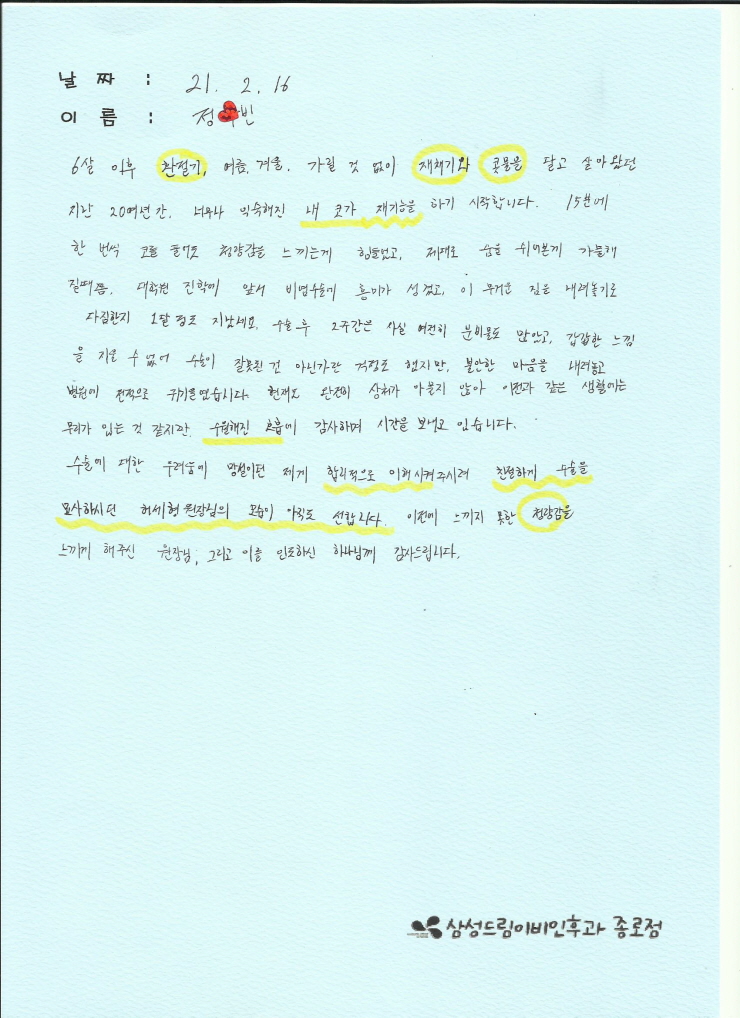 날 짜 : 21. 2. 16
이 름 : 정 빈
6살 이후 환절기, 여름, 겨울, 가릴 것 없이 재채기와 콧물을 달고 살아왔던
지난 20여년간, 너무나 익숙해진 내 코가 제기능을 하기 시작합니다. 15분에
한 번씩 코를 풀어도 청량감을 느끼는게 힘들었고, 제대로 숨을 쉬어본게 가물해
질때쯤, 대학원 진학에 앞서 비염수술에 흥미가 생겼고, 이 무거운 짐을 내려놓기로
다짐한지 1달 정도 지났네요. 수술 후 2주간은 사실 여전히 분비물도 많았고, 갑갑한 느낌
을 지울 수 없어 수술이 잘못된 건 아닌가란 걱정도 했지만, 불안한 마음을 내려놓고
병원에 전적으로 귀기울였습니다. 현재도 완전히 상처가 아물지 않아 이전과 같은 생활에는
무리가 있는 것 같지만, 수월해진 호흡에 감사하며 시간을 보내고 있습니다.
수술에 대한 두려움에 망설이던 제게 합리적으로 이해시켜주시려 친절하게 수술을
묘사하시던 허세형 원장님의 모습이 아직도 선합니다. 이전에 느끼지 못한 청량감을
느끼게 해주신 원장님, 그리고 이를 인도하신 하나님께 감사드립니다.
삼성드림이비인후과 종로점